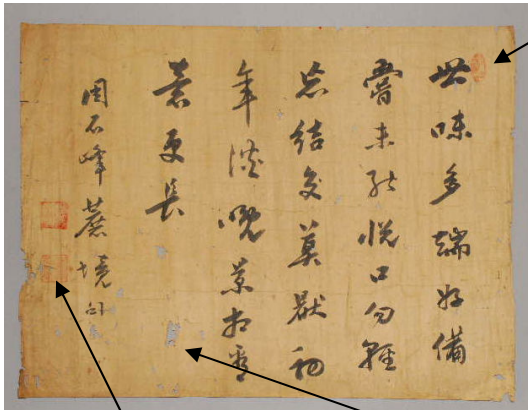 世味多端好備
嘗未能悅口勿輕
忘結交莫厭初
年淡晚景相看
意更長
周石峰蔗境